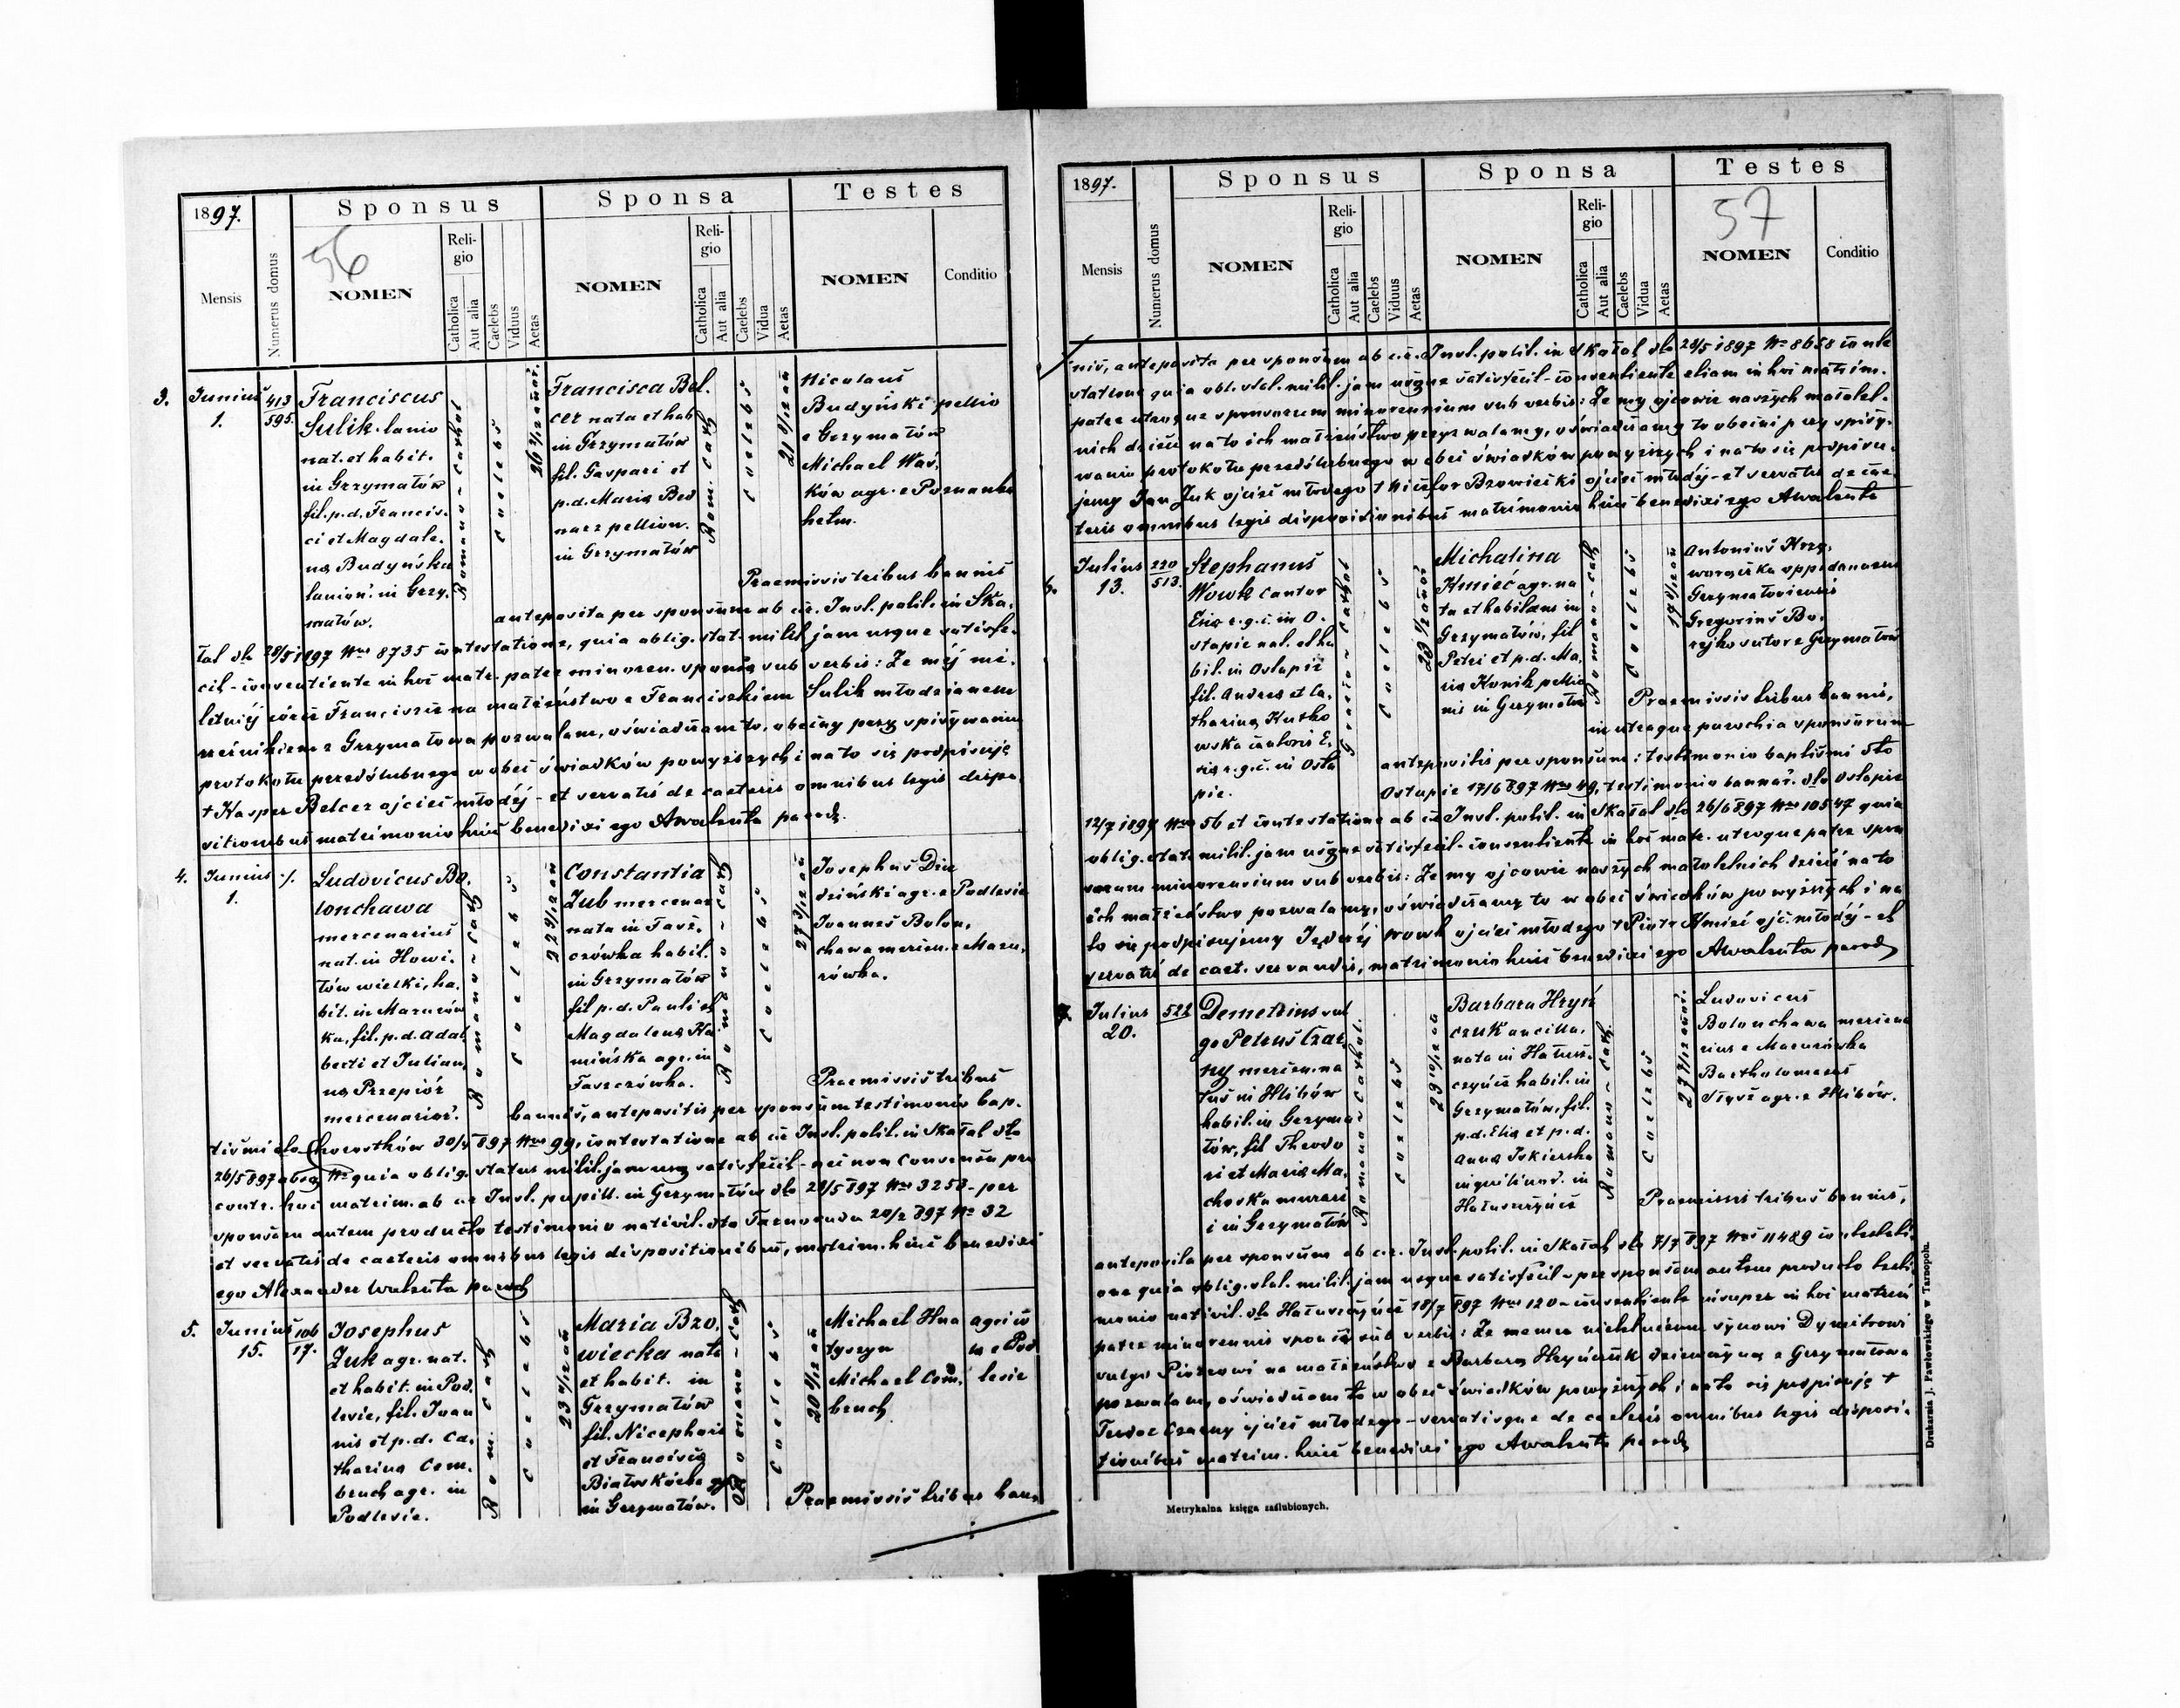 1897.
Mensis
Numerus domus
Sponsus
56
NOMEN
Religio
Catholica
Aut alia
Caelebs
Viduus
Aetas
Sponsa
NOMEN
Religio
Catholica
Aut alia
Caelebs
Vidua
Aetas
Testes
NOMEN
Conditio
3.
Junius
1.
413
595.
Franciscus
Sulik lanio
nat. et habit.
in Grzymałów
fil. p.d. Francis.
ci et Magdale.
na Budyńska
lanion. in Grzy.
małów.
Romano-cathol
Caelebs
26 2/12 annor.
Francisca Bel.
cer nata et hab
in Grzymałów
fil. Gaspari et
p.d. Maria Bed
narz pellion.
in Grzymałów
Rom. cath
Caelebs
Nicolaus
Budyński pellio
e Grzymałów
Michael Waś.
ków agr. e Poznanka
hetm.
Praemissis tribus bannis
anteposita per sponsum ab c.r. Inst. polit. in Ska.
łat dto 28/5 1897 Nro 8735 contestatione, quia oblig. stat. milit jam usque satisfe.
cit - consentiente in hoc matr. pater minoren. sponsa sub verbis: Że mej nie.
letniej córce Franciszce na małżeństwo z Franciszkiem Sulik młodzianem
rzeźnikiem z Grzymałowa pozwalam, oświadczam to, obecny przy spisywaniu
protokołu przedślubnego wobec świadków powyższych i na to się podpisuję
+ Kasper Belcer ojciec młodej - et servatis de caeteris omnibus legis dispo.
sitionibus matrimonio huic benedixi ego Awalenta paroch.
4.
Junius
1.
./.
Ludovicus Bo.
lonchawa
mercenarius
nat. in Howi.
łów wielki, ha.
bit. in Mazurów
ka, fil. p.d. Adal
berti et Julian.
na Przepiór
mercenarior.
Romano-cath
Caelebs
Constantia
Zub mercenar
nata in Tasz.
czówka habit.
in Grzymałów
fil p.d. Pauli et
Magdalena Ka
mińska agr. in
Taszczówka.
Romano-cath
Caelebs
Josephus Dzie
dziński agr. e Podlesie
Joannes Bolon.
chawa mercen. e Mazu.
rówka.
Praemissis tribus
bannis, antepositis per sponsum testimonio bap.
tismi dto Chorostków 30/4 897 Nro 99, contestatione ab c.r. Inst. polit. in Skałat dto
26/5 897 absq Nro quia oblig. status milit. jam usq satisfecit - nec non consensu pro
contr. hoc matrim. ab c.r. Inst. pupill. in Grzymałów dto 28/5 897 Nro 3258 - per
sponsam autem producto testimonio nativit. dto Tarnoruda 20/2 897 Nr 32
et servatis de caeteris omnibus legis dispositionibus, matrim. huic benedixi
ego Alexander Walenta paroch
5.
Junius
15.
106
17.
Josephus
Żuk agr. nat.
et habit. in Pod.
lesie, fil. Joan
nis et p.d. Ca.
tharina Com.
bruch agr. in
Podlesie.
Rom. cath
Caelebs
Maria Bro.
wiecka nata
et habit. in
Grzymałów
fil. Nicephori
et Francisca
in Grzymałów.
Romano-cath
Caelebs
Michael Hna agric
tyszyn
Michael Com.
bruch
e Pod
lesie
Praemissis tribus ban.
1897.
Mensis
Numerus domus
Sponsus
NOMEN
Religio
Catholica
Aut alia
Caelebs
Viduus
Aetas
Sponsa
NOMEN
Religio
Catholica
Aut alia
Caelebs
Vidua
Aetas
Testes
57
NOMEN
Conditio
nis, anteposita per sponsum ab c.r. Inst. polit. in Skałat dto 29/5 1897 Nro 8658 conte
statione quia obl. stat. milit. jam usque satisfecit - consentiente etiam in hoc matrim.
patre utroque sponsorum minorennium sub verbis: Że my ojcowie naszych małolet.
nich dzieci na to ich małżeństwo przyzwalamy, oświadczamy to obecni przy spisy.
waniu protokołu przedślubnego w obec świadków powyższych i na to się podpisu.
jemy Jan Żuk ojciec młodego + Nicefor Browiecki ojciec młodej - et servatis de cae.
teris omnibus legis dispositionibus matrimonio huic benedixi ego Awalenta
6.
Julius
13.
220
513.
Stephanus
Wowk cantor
Ecia r.g.c. in O.
stapie nat. et ha
bit. in Ostapie
fil. Andrea et Ca.
tharina Kutko
wska cantoris E.
cia r.g.c. in Osta
pie.
Graeco-cathol
Caelebs
Michalina
Kmieć agr. na
ta et habitans in
Grzymałów, fil
Petri et p.d. Ma.
ria Konik pellio
nis in Grzymałów
Romano-cath
Caelebs
Antonius Krzy.
worączka oppidanus
Grzymałoviensis
Gregorius Bo.
rejko sutor e Grzymałów
Praemissis tribus bannis,
in utraque parochia sponsorum
antepositis per sponsum: testimonio baptismi dto
Ostapie 17/6 897 Nro 49, testimonio bannor. dto Ostapie
12/7 1897 Nro 56 et contestatione ab c.r. Inst. polit. in Skałat dto 26/6 897 Nro 10547 quia
oblig. stat. milit. jam usque satisfecit - consentiente in hoc matr. utroque patre spon
sorum minorennium sub verbis: Że my ojcowie naszych małoletnich dzieci na to
ich małżeństwo pozwalamy, oświadczamy to w obec świadków powyższych i na
to się podpisujemy Jędrzej Wowk ojciec młodego + Piotr Kmieć ojc. młodej - et
servatis de caet. servandis, matrimonio huic benedixi ego Awalenta paroch
7.
Julius
20.
522
Demetrius vul
go Petrus Czar
ny mercen. na
tus in Hlibów
habit. in Grzyma
łów, fil Theodo
ri et Maria Ma.
choska murari
i in Grzymałów
Romano-cathol.
Caelebs
23 10/12 a
Barbara Hryń
czuk ancilla.
nata in Hałusz.
czyńce habit. in
Grzymałów, fil.
p.d. Elia et p.d.
Anna Iskierska
inquilinor. in
Hałuszczyńce
Romano-cath.
Caelebs
Ludovicus
Bolonchawa mercena
rius e Mazurówka
Bartholomaeus
agr. e Hlibów.
Praemissis tribus bannis,
anteposita per sponsum ab c.r. Inst. polit. in Skałat dto 7/7 897 Nro 11489 contestati.
one quia oblig. stat. milit. jam usque satisfecit - per sponsam autem producto testi
monio nativit. dto Hałuszczyńce 18/7 897 Nro 120 - consentiente insuper in hoc matrim
patre minorennis sponsi sub verbis: Że memu nieletniemu synowi Dymitrowi
vulgo Piotrowi na małżeństwo z Barbarą Hryńczuk dziewczyną z Grzymałowa
pozwalam, oświadczam to w obec świadków powyższych i na to się podpisuję +
Teodor Czarny ojciec młodego - servatisque de caeteris omnibus legis disposi.
tionibus matrim. huic benedixi ego Awalenta paroch
Metrykalna księga zaślubionych.
Drukarnia J. Pawłowskiego w Tarnopolu.